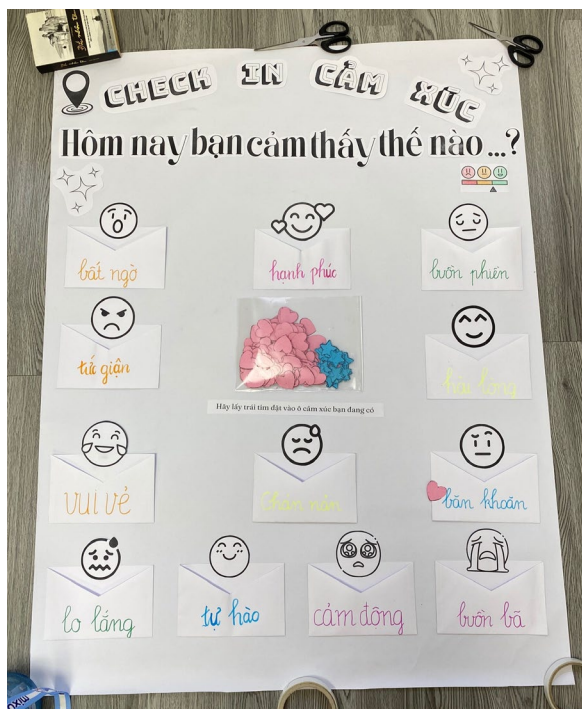 CHECK IN CẢM XÚC
Hôm nay bạn cảm thấy thế nào ...?
bất ngờ
hạnh phúc
buồn phiền
tức giận
hài lòng
Hãy lấy trái tim đặt vào ô cảm xúc bạn đang có
vui vẻ
chán nản
băn khoăn
lo lắng
tự hào
cảm động
buồn bã